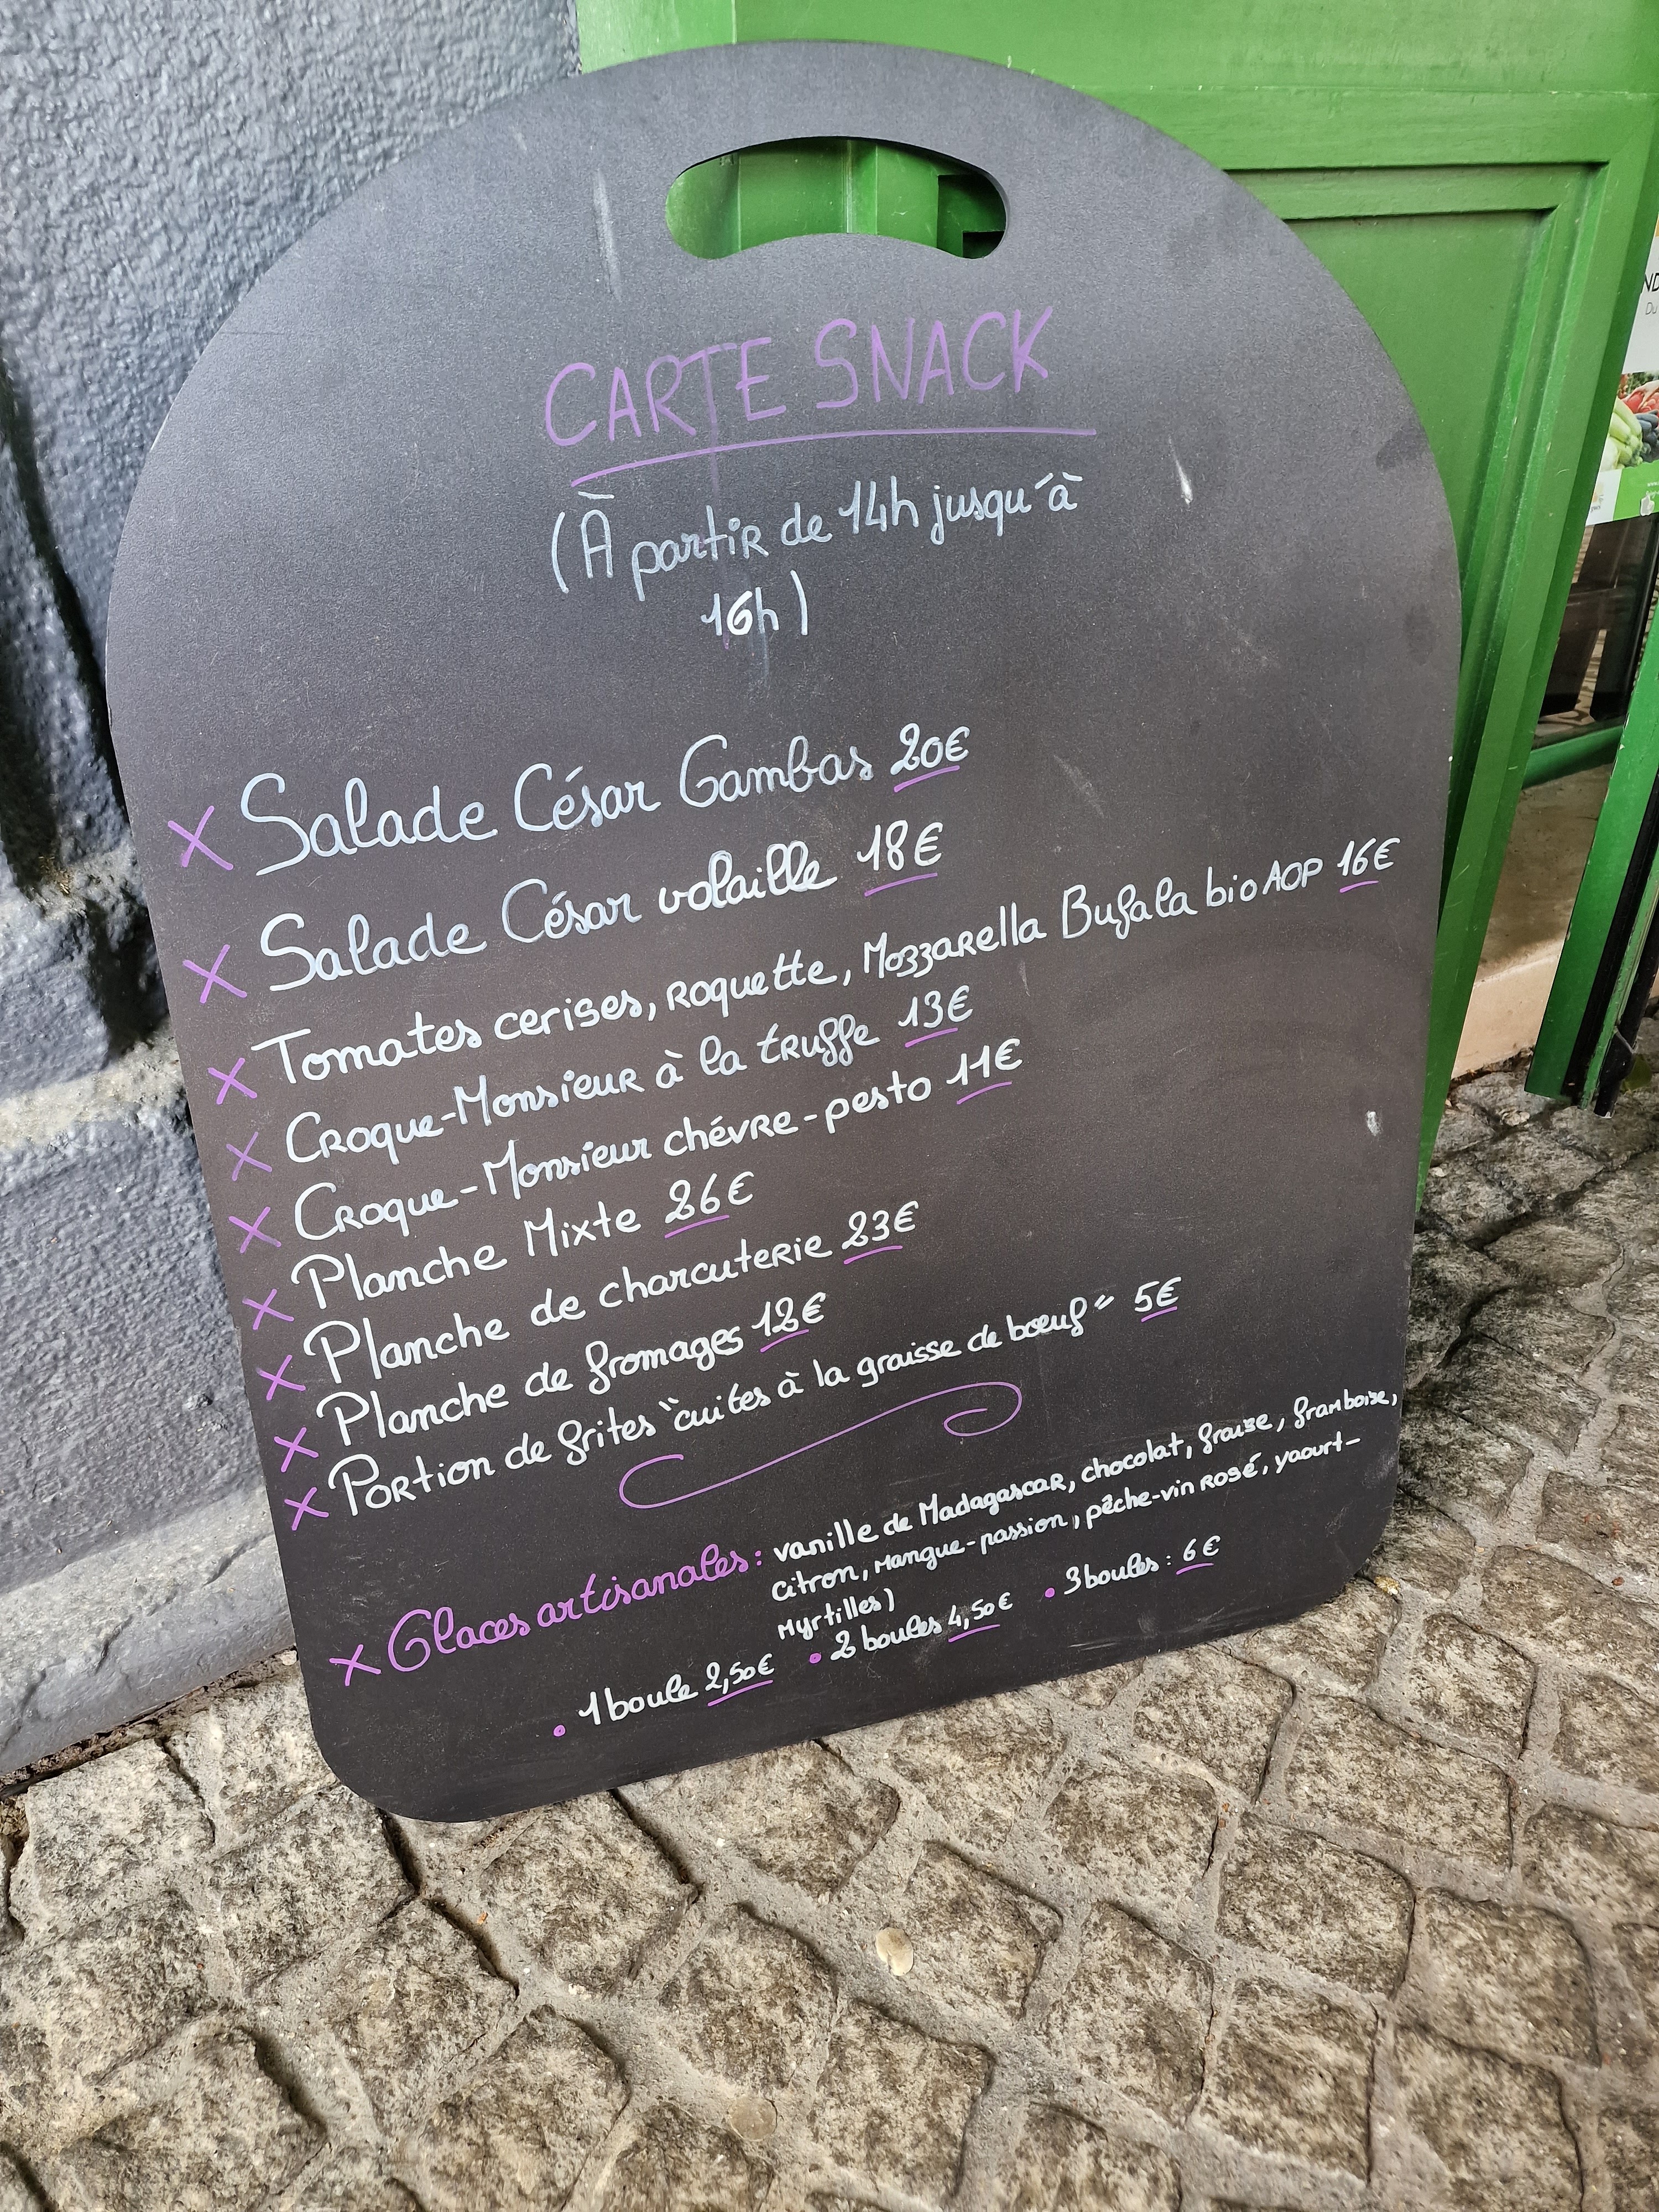 CARTE SNACK
(À partir de 14h jusqu'à
16h)
X Salade César Gambas 20€
X Salade César volaille 18€
X Tomates cerises, roquette, Mozzarella Bufala bio AOP 16€
X Croque-Monsieur à la truffe 13€
X Croque-Monsieur chévre-pesto 11€
X Planche Mixte 26€
X Planche de charcuterie 23€
X Planche de fromages 12€
X Portion de frites "cuites à la graisse de bœuf" 5€
X Glaces artisanales: vanille de Madagascar, chocolat, fraise, framboise,
citron, mangue-passion, pêche-vin rosé, yaourt-
myrtilles)
• 1 boule 2,50€ • 2 boules 4,50€ • 3 boules: 6€
ND
Du